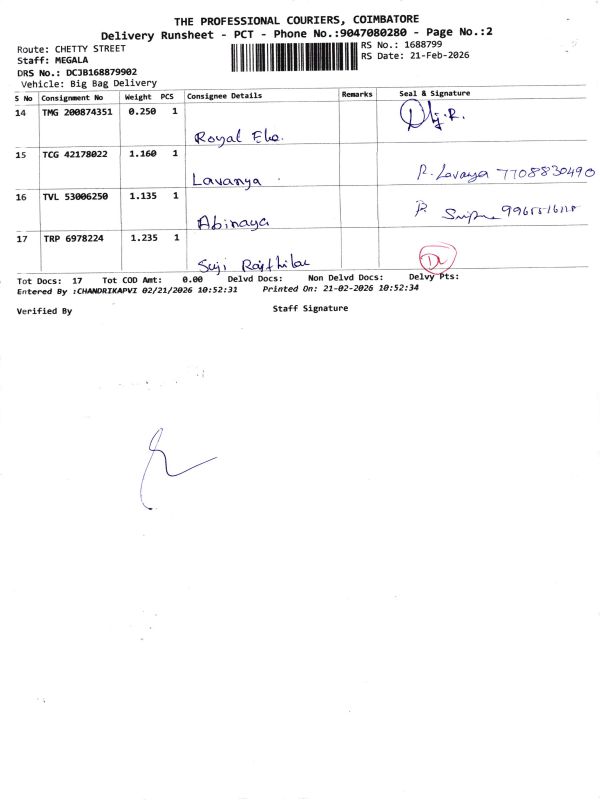 THE PROFESSIONAL COURIERS, COIMBATORE
Delivery Runsheet - PCT - Phone No.:9047080280 - Page No.:2
Route: CHETTY STREET
RS No.: 1688799
Staff: MEGALA
RS Date: 21-Feb-2026
DRS No.: DCJB168879902
Vehicle: Big Bag Delivery
S No Consignment No Weight PCS Consignee Details Remarks Seal & Signature
14 TMG 200874351 0.250 1
Royal
15 TCG 42178022 1.160 1
Lavanya R. Lavanya 7708830490
16 TVL 53006250 1.135 1
Abinaya
17 TRP 6978224 1.235 1
Suji
Tot Docs: 17 Tot COD Amt: 0.00 Delvd Docs: Non Delvd Docs: Delvy Pts:
Entered By :CHANDRIKAPVI 02/21/2026 10:52:31 Printed On: 21-02-2026 10:52:34
Verified By Staff Signature